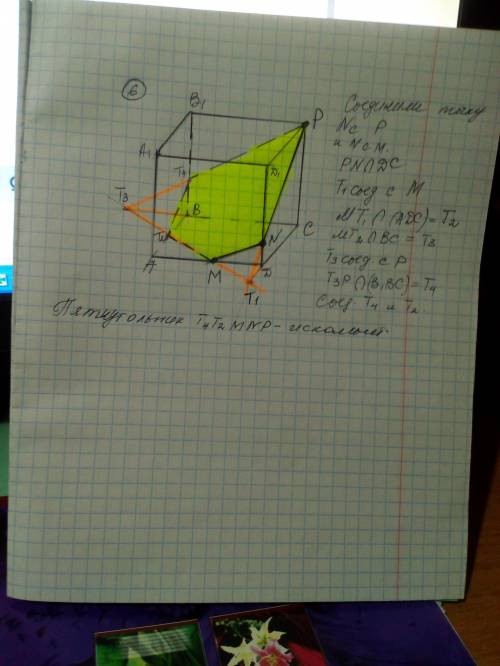 6
B₁
P
A₁
T₄
D₁
T₃
B
C
T₂
N
A
M
D
T₁
Соединим точку
N с P
и N с M.
PN∩DC
T₁ соед с M
MT₁∩(ADC)=T₂
MT₂∩BC=T₃
T₃ соед. с P
T₃P∩(B₁BC)=T₄
Соед. T₄ и T₂.
Пятиугольник T₄T₂MNP-искомый.